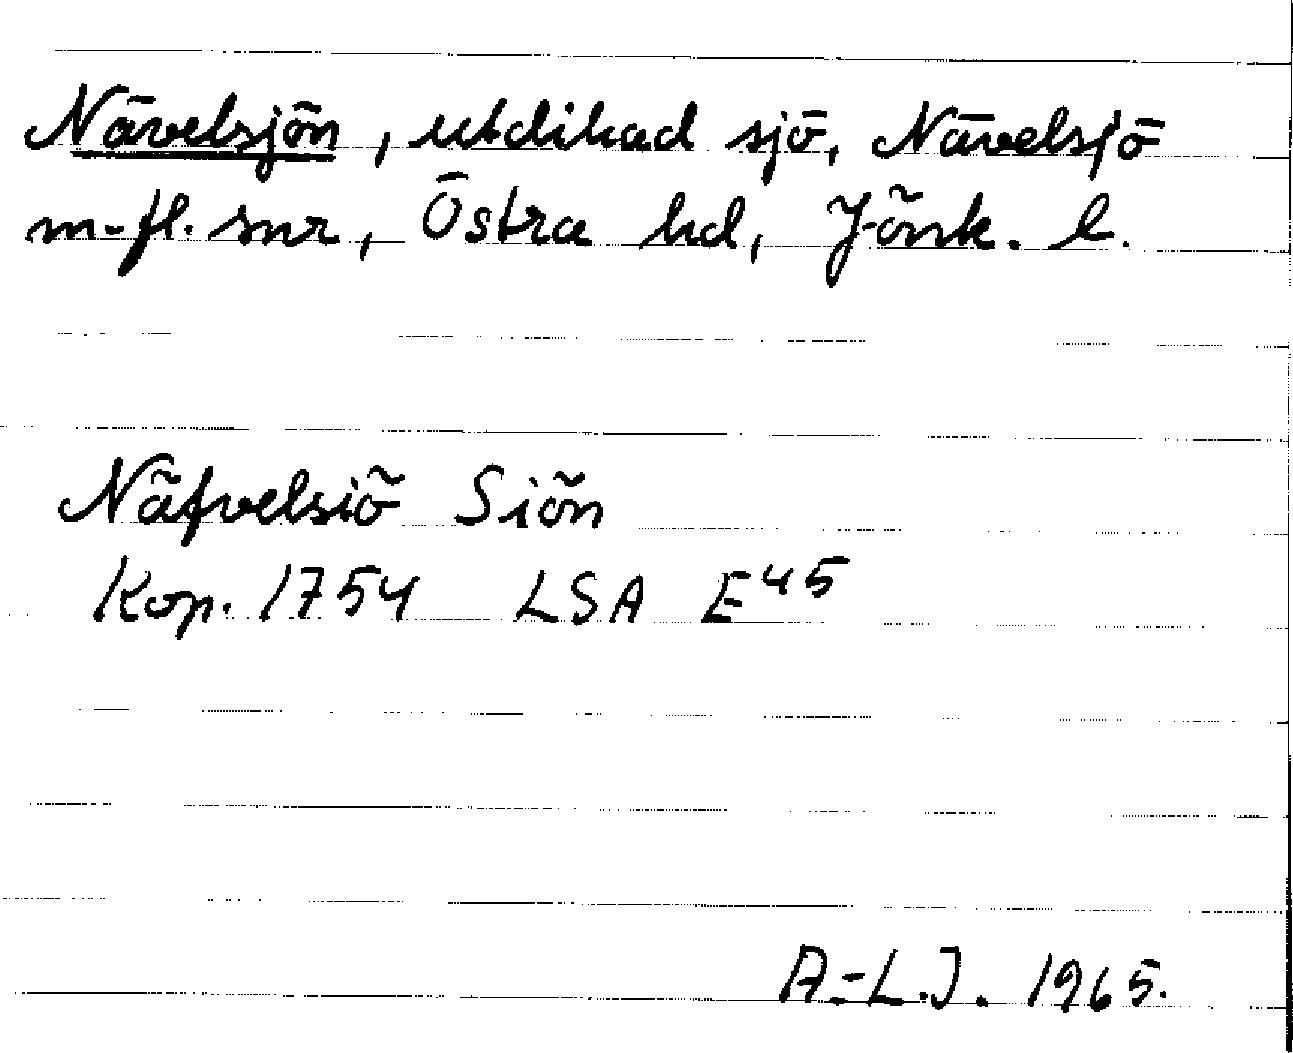 Nävelsjön, utdikad sjö, Nävelsjö
m.fl. snr, Östra hd, Jönk. l.
Näfvelsiö Siön
Kop. 1754 LSA E45
A-L.J. 1965.